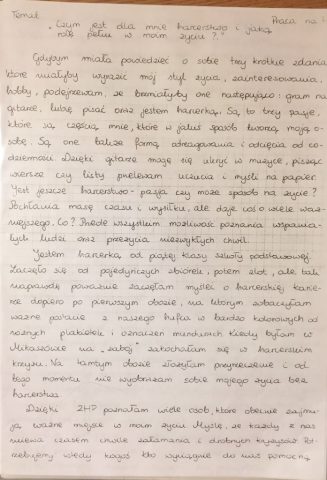 Temat Praca na 1
"Czym jest dla mnie harcerstwo i jaką
rolę pełni w moim życiu?."
Gdybym miała powiedzieć o sobie trzy krótkie zdania
które miałyby wyrazić mój styl życia, zainteresowania,
hobby, podejrzewam, że brzmiałyby one następująco: gram na
gitarze, lubię pisać oraz jestem harcerką. Są, to trzy pasje,
które są częścią mnie, które w jakiś sposób tworzą moją o-
sobę. Są one także formą odreagowania i odcięcia od co-
dzienności Dzięki gitarze mogę się ukryć w muzyce, pisząc
wiersze czy listy przelewam uczucia i myśli na papier.
Jest jeszcze harcerstwo - pasja czy może sposób na życie?
Pochłania masę czasu i wysiłku, ale daje coś o wiele waż-
niejszego. Co? Przede wszystkim możliwość poznania wspania-
łych ludzi oraz przeżycia niezwykłych chwil.
Jestem harcerką od piątej klasy szkoły podstawowej.
Zaczęło się od pojedyńczych zbiórek, potem zlot, ale tak
naprawdę poważnie zaczęłam myśleć o harcerskiej karie-
rze dopiero po pierwszym obozie, na którym zobaczyłam
ważne postacie z naszego hufca w bardzo kolorowych od
różnych plakietek i oznaczeń mundurach Kiedy byłam w
na "zabój" zakochałam się w harcerskim
krzyżu. Na tamtym obozie złożyłam przyrzeczenie i od
tego momentu nie wyobrażam sobie mojego życia bez
harcerstwa.
Dzięki ZHP poznałam wiele osób, które obecnie zajmu-
ją, ważne miejsce w moim życiu Myślę, że każdy z nas
miewa czasem chwile załamania i drobnych kryzysów Pot-
rzebujemy wtedy kogoś kto wyciągnie do nas pomocną